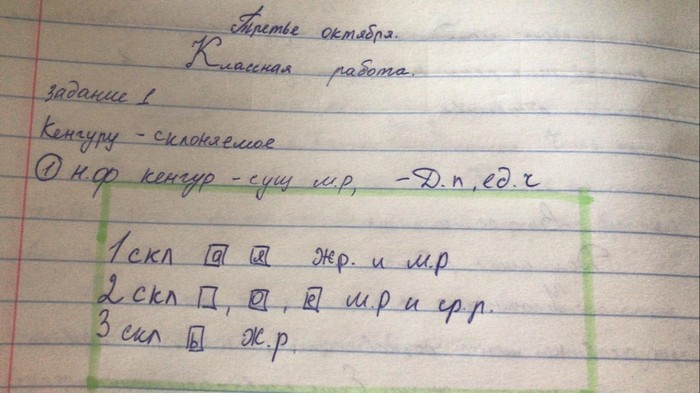 Третье октября.
Классная работа.
задание 1
Кенгуру - склоняемое
① н.ф кенгур - сущ м.р, - Д.п, ед.ч
1 скл а я ж.р. и м.р
2 скл , о, е м.р и ср.р.
3 скл ь ж.р.